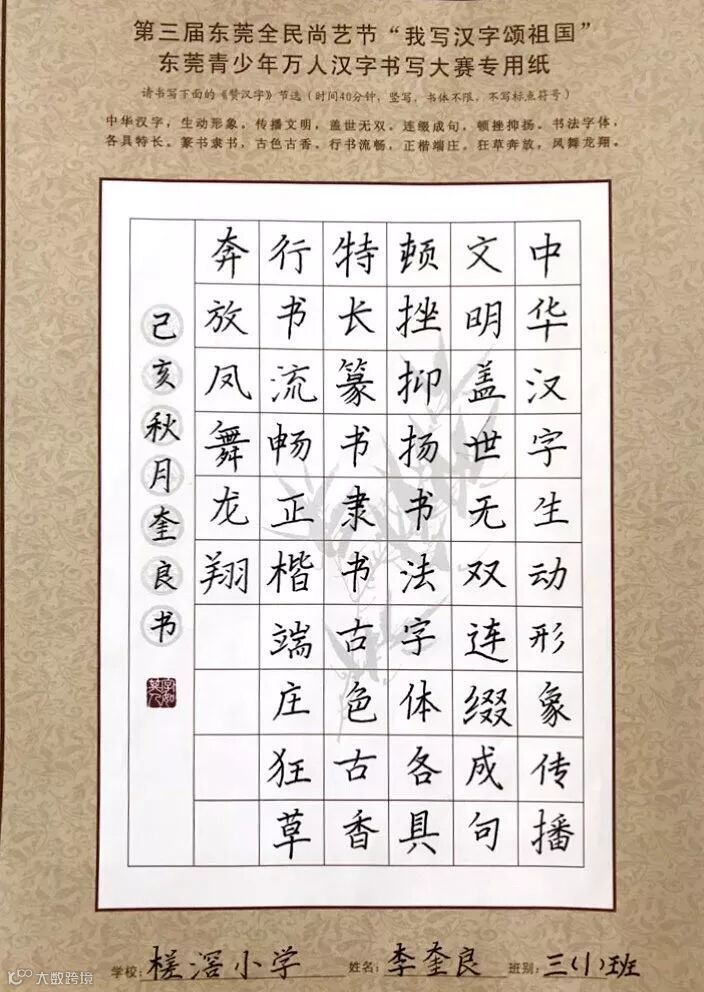 第三届东莞全民尚艺节“我写汉字颂祖国”
东莞青少年万人汉字书写大赛专用纸
请书写下面的《赞汉字》节选（时间40分钟，竖写，书体不限，不写标点符号）
中华汉字，生动形象。传播文明，盖世无双。连缀成句，顿挫抑扬。书法字体，
各具特长。篆书隶书，古色古香。行书流畅，正楷端庄。狂草奔放，凤舞龙翔。
中华汉字生动形象传播
文明盖世无双连缀成句
顿挫抑扬书法字体各具
特长篆书隶书古色古香
行书流畅正楷端庄狂草
奔放凤舞龙翔
己亥秋月奎良书
字如其人
学校：槎滘小学 姓名：李奎良 班别：三（1）班
大数跨境